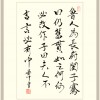 魯人為長府閔子騫
曰仍舊貫如之何何
必改作子曰夫人不
言言必有中